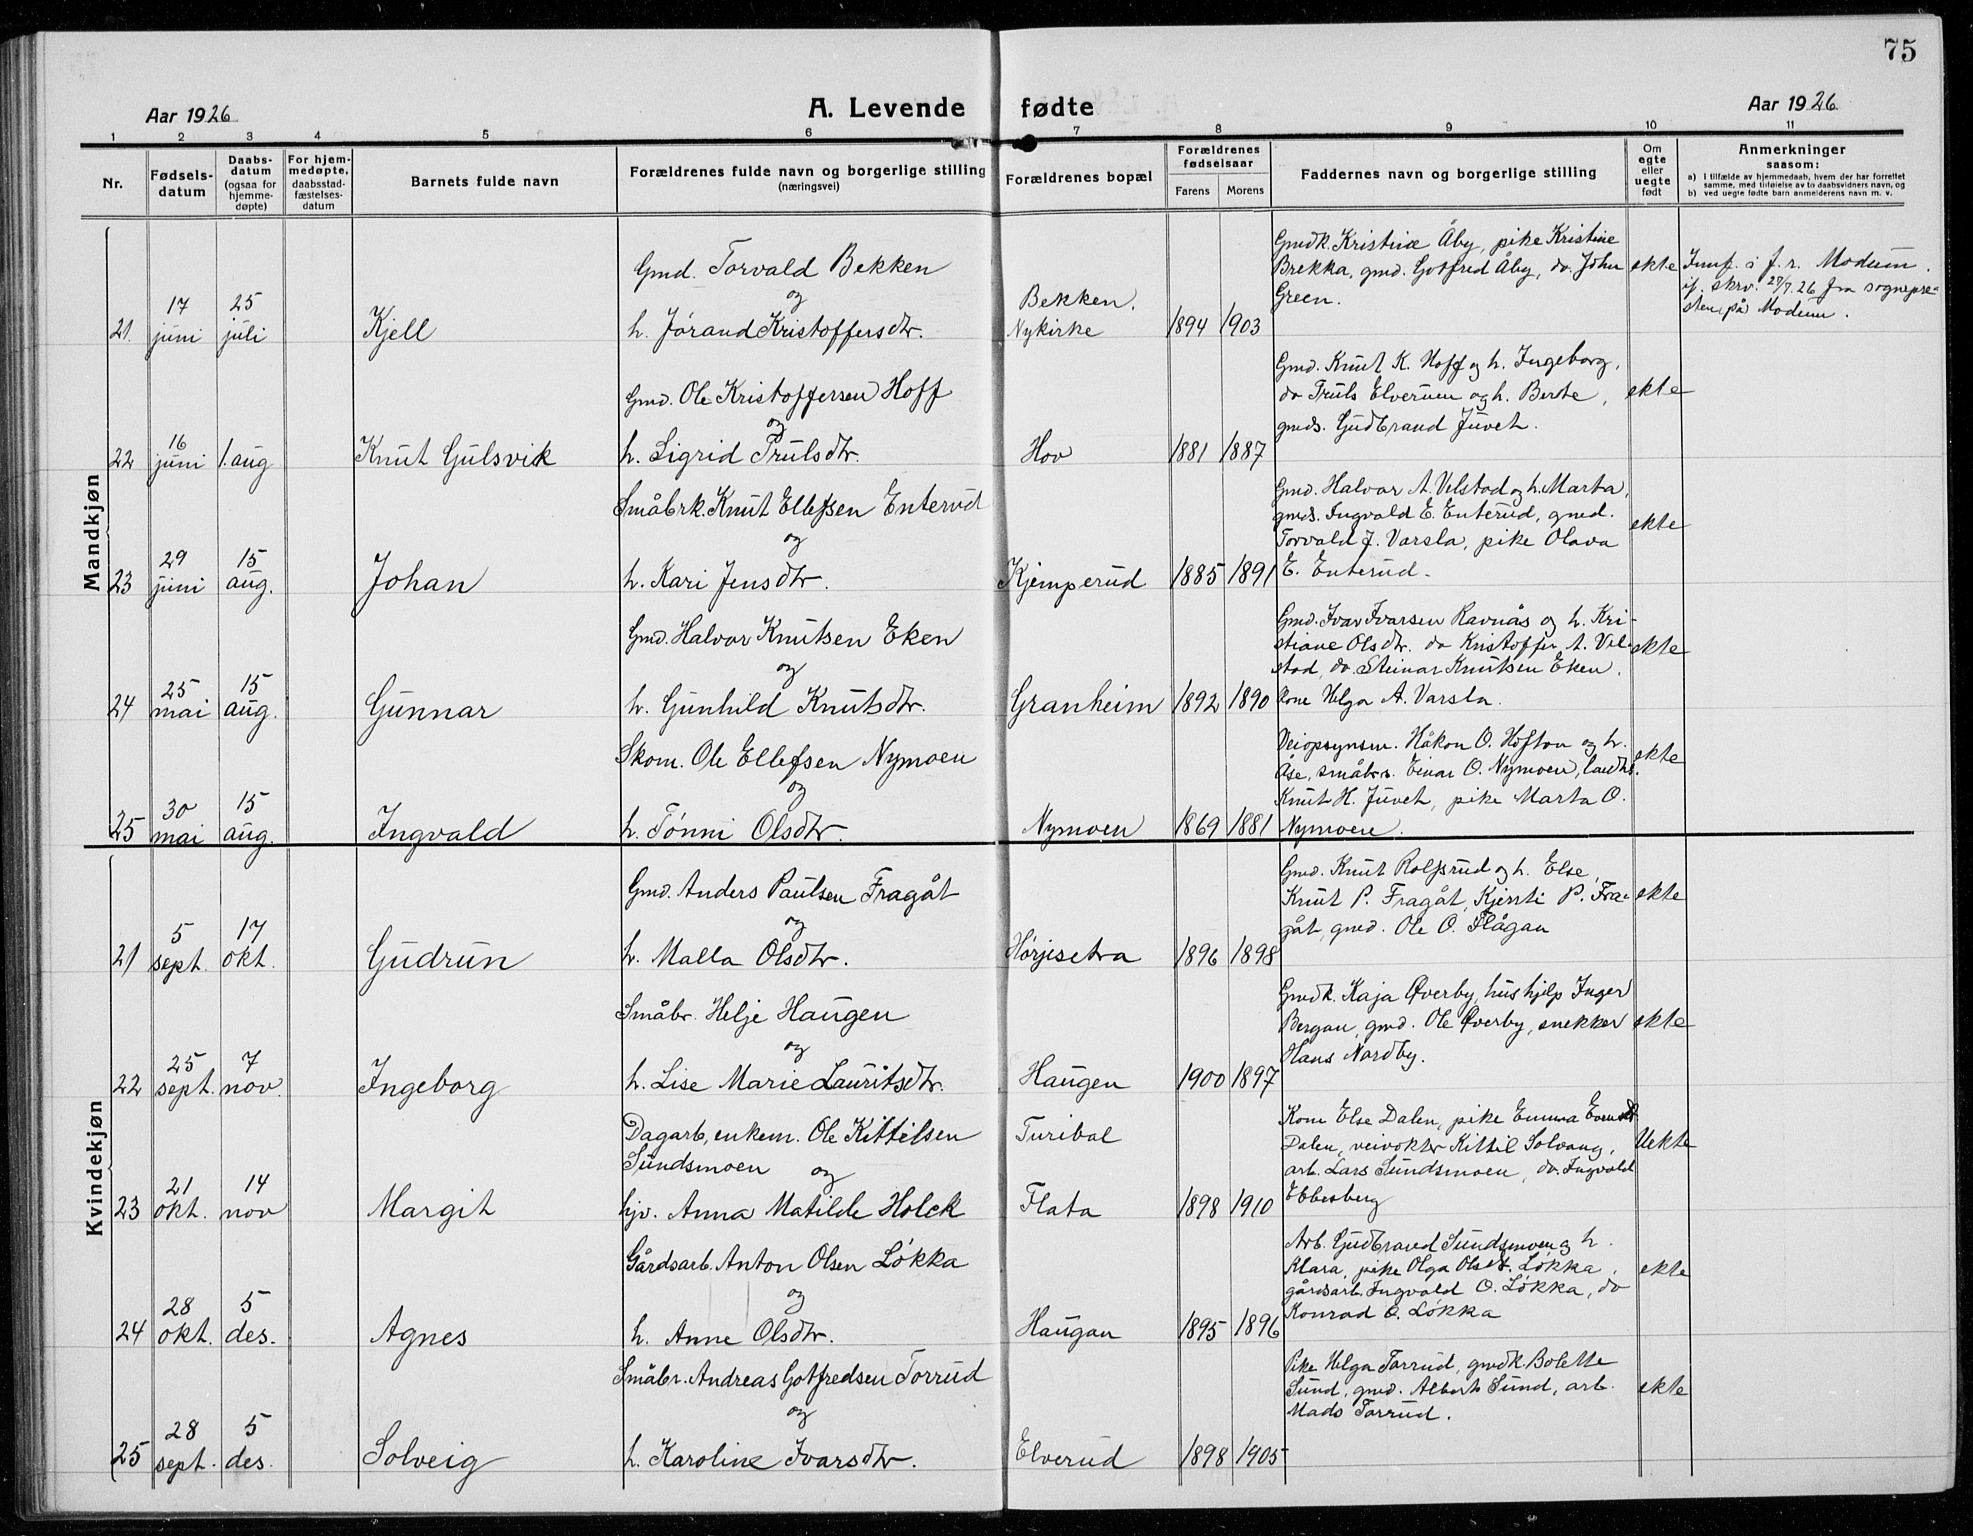 75
Aar 1926
A. Levende fødte
Aar 1926
1 2 3 4 5 6 7 8 9 10 11
Nr.
Fødsels-
datum
Daabs-
datum
(ogsaa for
hjemme-
døpte)
For hjem-
medøpte,
daabsstad-
fæstelses-
datum
Barnets fulde navn
Forældrenes fulde navn og borgerlige stilling
(næringsvei)
Forældrenes bopæl
Forældrenes
fødselsaar
Farens Morens
Faddernes navn og borgerlige stilling
Om
egte
eller
uegte
født
Anmerkninger
saasom:
a) I tilfælde av hjemmedaab, hvem der har forrettet
samme, med tilføielse av to daabsvidners navn, og
b) ved uegte fødte barn anmelderens navn m. v.
Mandkjøn
21. 17 juni 25 juli Kjell
Gmd. Torvald Bekken
og
h. Jørand Kristoffersdtr.
Bekken.
Nykirke
1894 1903
Gmdk. Kristine Åby, pike Kristine
Brekka, gmd. Gotfred Åby, do. John
Green.
ekte
Innf. i f. r. Modum
if. skrv. 27/7.26 fra sognepre-
sten på Modum.
22 16 juni 1. aug Knut Gulsvik
Gmd. Ole Kristoffersen Hoff
og
h. Sigrid Trulsdtr.
Hov
1881 1887
Gmd. Knut K. Hoff og h. Ingeborg,
do Truls Elverum og h. Berte,
gmds. Gudbrand Juvet.
ekte
23 29 juni 15 aug. Johan
Småbrk. Knut Ellefsen Enterud
og
h. Kari Jensdtr.
Kjemperud
1885 1891
Gmd. Halvor A. Velstad og h. Marta,
gmds. Ingvald E. Enterud, gmd.
Torvald J. Varsla, pike Olava
E. Enterud.
ekte
24 25 mai 15 aug. Gunnar
Gmd. Halvor Knutsen Eken
og
h. Gunhild Knutsdtr.
Granheim
1892 1890
Gmd. Ivar Ivarsen Ravnås og h. Kri-
stiane Olsdtr. do Kristoffer A. Vel-
stad, do. Steinar Knutsen Eken.
Kone Helga A. Varsla.
ekte
25 30 mai 15 aug. Ingvald
Skom. Ole Ellefsen Nymoen
og
h. Tønni Olsdtr.
Nymoen
1869 1881
Veiopsynsm. Håkon O. Hofton og h.
Åse, småbr. Einar O. Nymoen, landhs.
Knut H. Juvet, pike Marta O.
Nymoen.
ekte
Kvindekjøn
21 5 sept. 17 okt. Gudrun
Gmd. Anders Paulsen Fragåt
og
h. Malla Olsdtr.
Hørjesetra
1896 1898
Gmd. Knut Rolfsrud og h. Else,
Knut P. Fragåt, Kjersti P. Fra-
gåt, gmd. Ole O. Flågan
ekte
22 25 sept. 7 nov. Ingeborg
Småbr. Helje Haugen
og
h. Lise Marie Lauritsdtr.
Haugen
1900 1897
Gmdk. Kaja Øverby, hushjelp Inger
Bergan, gmd. Ole Øverby, snekker
Hans Nordby.
ekte
23 21 okt. 14 nov Margit
Dagarb, enkem. Ole Kittilsen
Sundsmoen og
hjv. Anna Matilde Holck
Turibal
Flata
1898 1910
Kone Else Dalen, pike Emma
Dalen, veivokter Kittil Solvang,
arb. Lars Sundsmoen, do. Ingvald
Ebbesberg
Uekte
24 28 okt. 5 des. Agnes
Gårdsarb. Anton Olsen Løkka
og
h. Anne Olsdtr.
Haugan
1895 1896
Arb. Gudbrand Sundsmoen og h.
Klara, pike Olga Olsdt. Løkka,
gårdsarb. Ingvald O. Løkka, do
Konrad O. Løkka
ekte
25 28 sept. 5 des. Solveig
Småbr. Andreas Gotfredsen Torrud
og
h. Karoline Ivarsdtr.
Elverud
1898 1905
Pike Helga Torrud, gmdk. Bolette
Sund, gmd. Albert Sund, arb.
Mads Torrud.
ekte